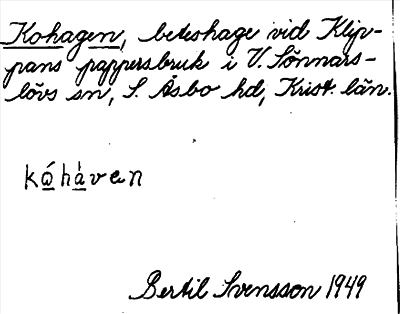 Kohagen, beteshage vid Klip-
pans pappersbruk i V. Sönnars-
lövs sn, S. Åsbo hd, Krist. län.
kóhàvan
Bertil Svensson 1949